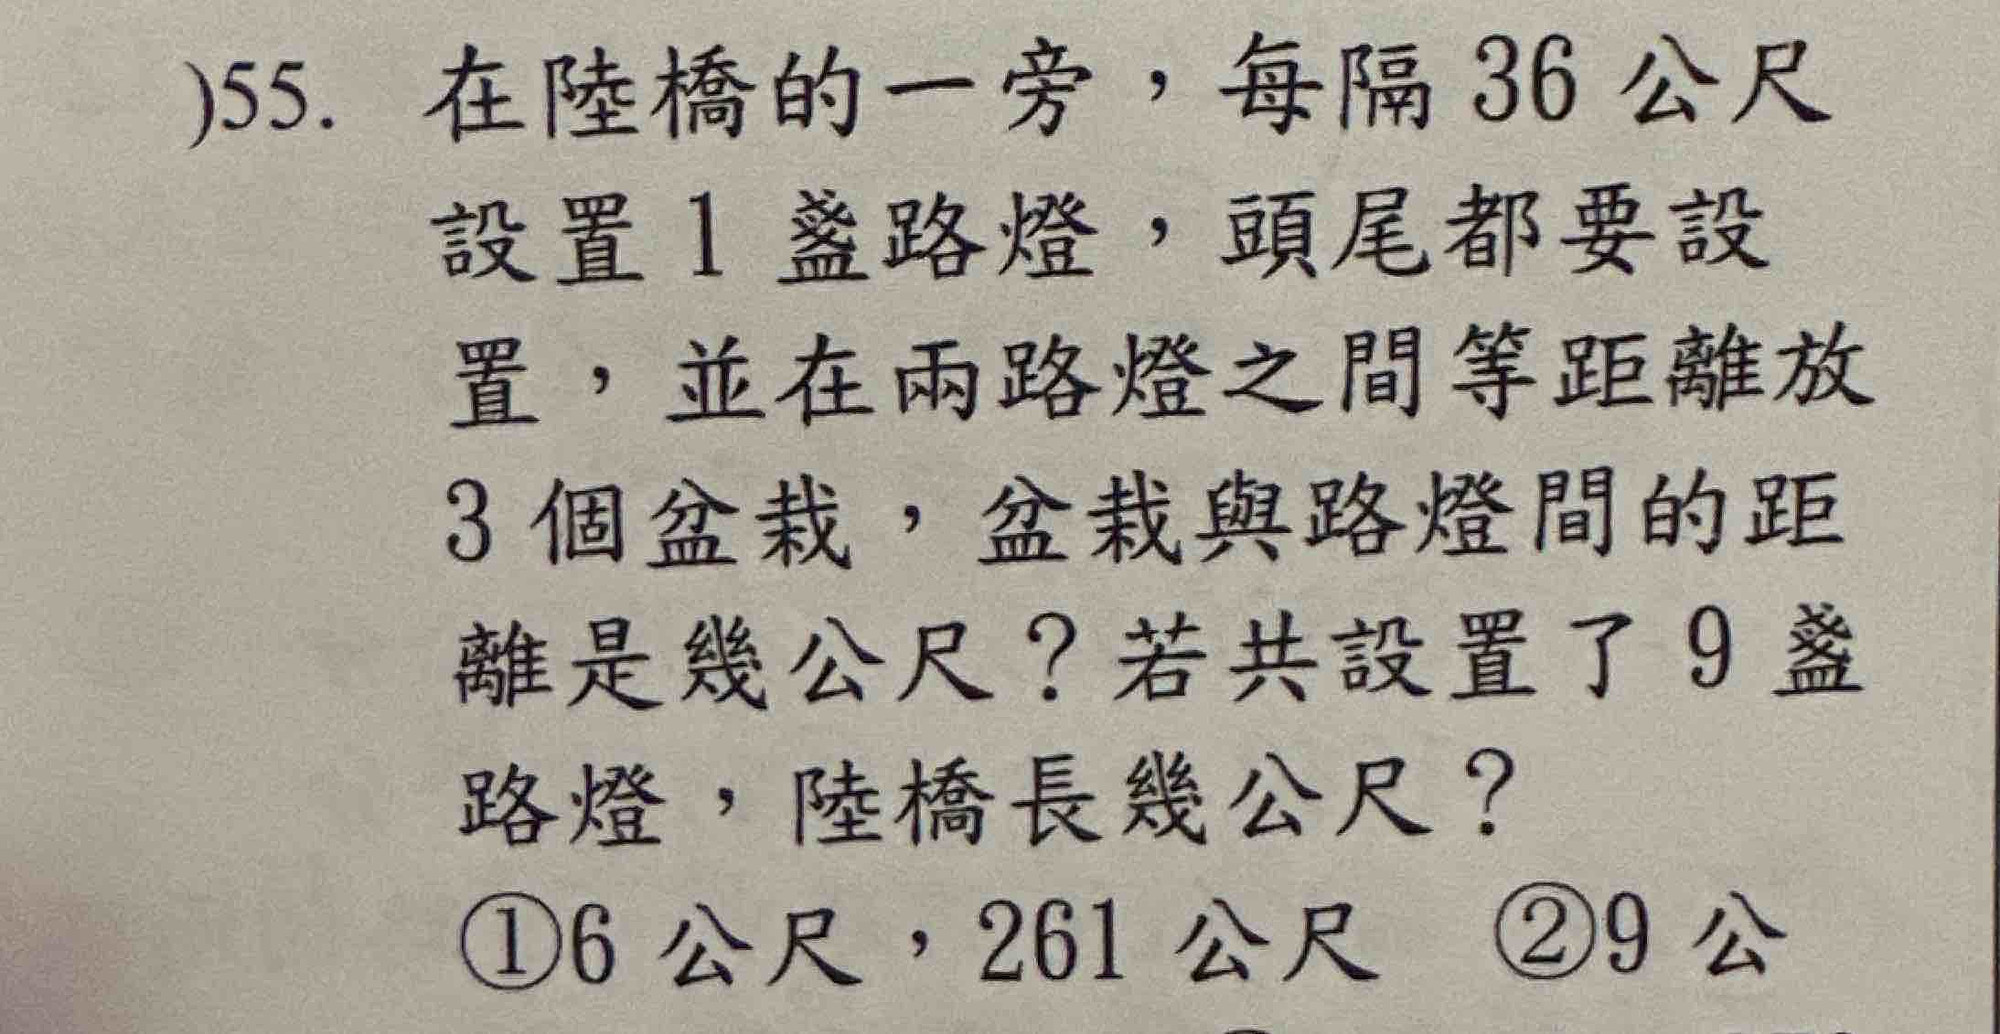 )55. 在陸橋的一旁，每隔 36 公尺
設置 1 盞路燈，頭尾都要設
置，並在兩路燈之間等距離放
3 個盆栽，盆栽與路燈間的距
離是幾公尺？若共設置了 9 盞
路燈，陸橋長幾公尺？
①6 公尺，261 公尺 ②9 公